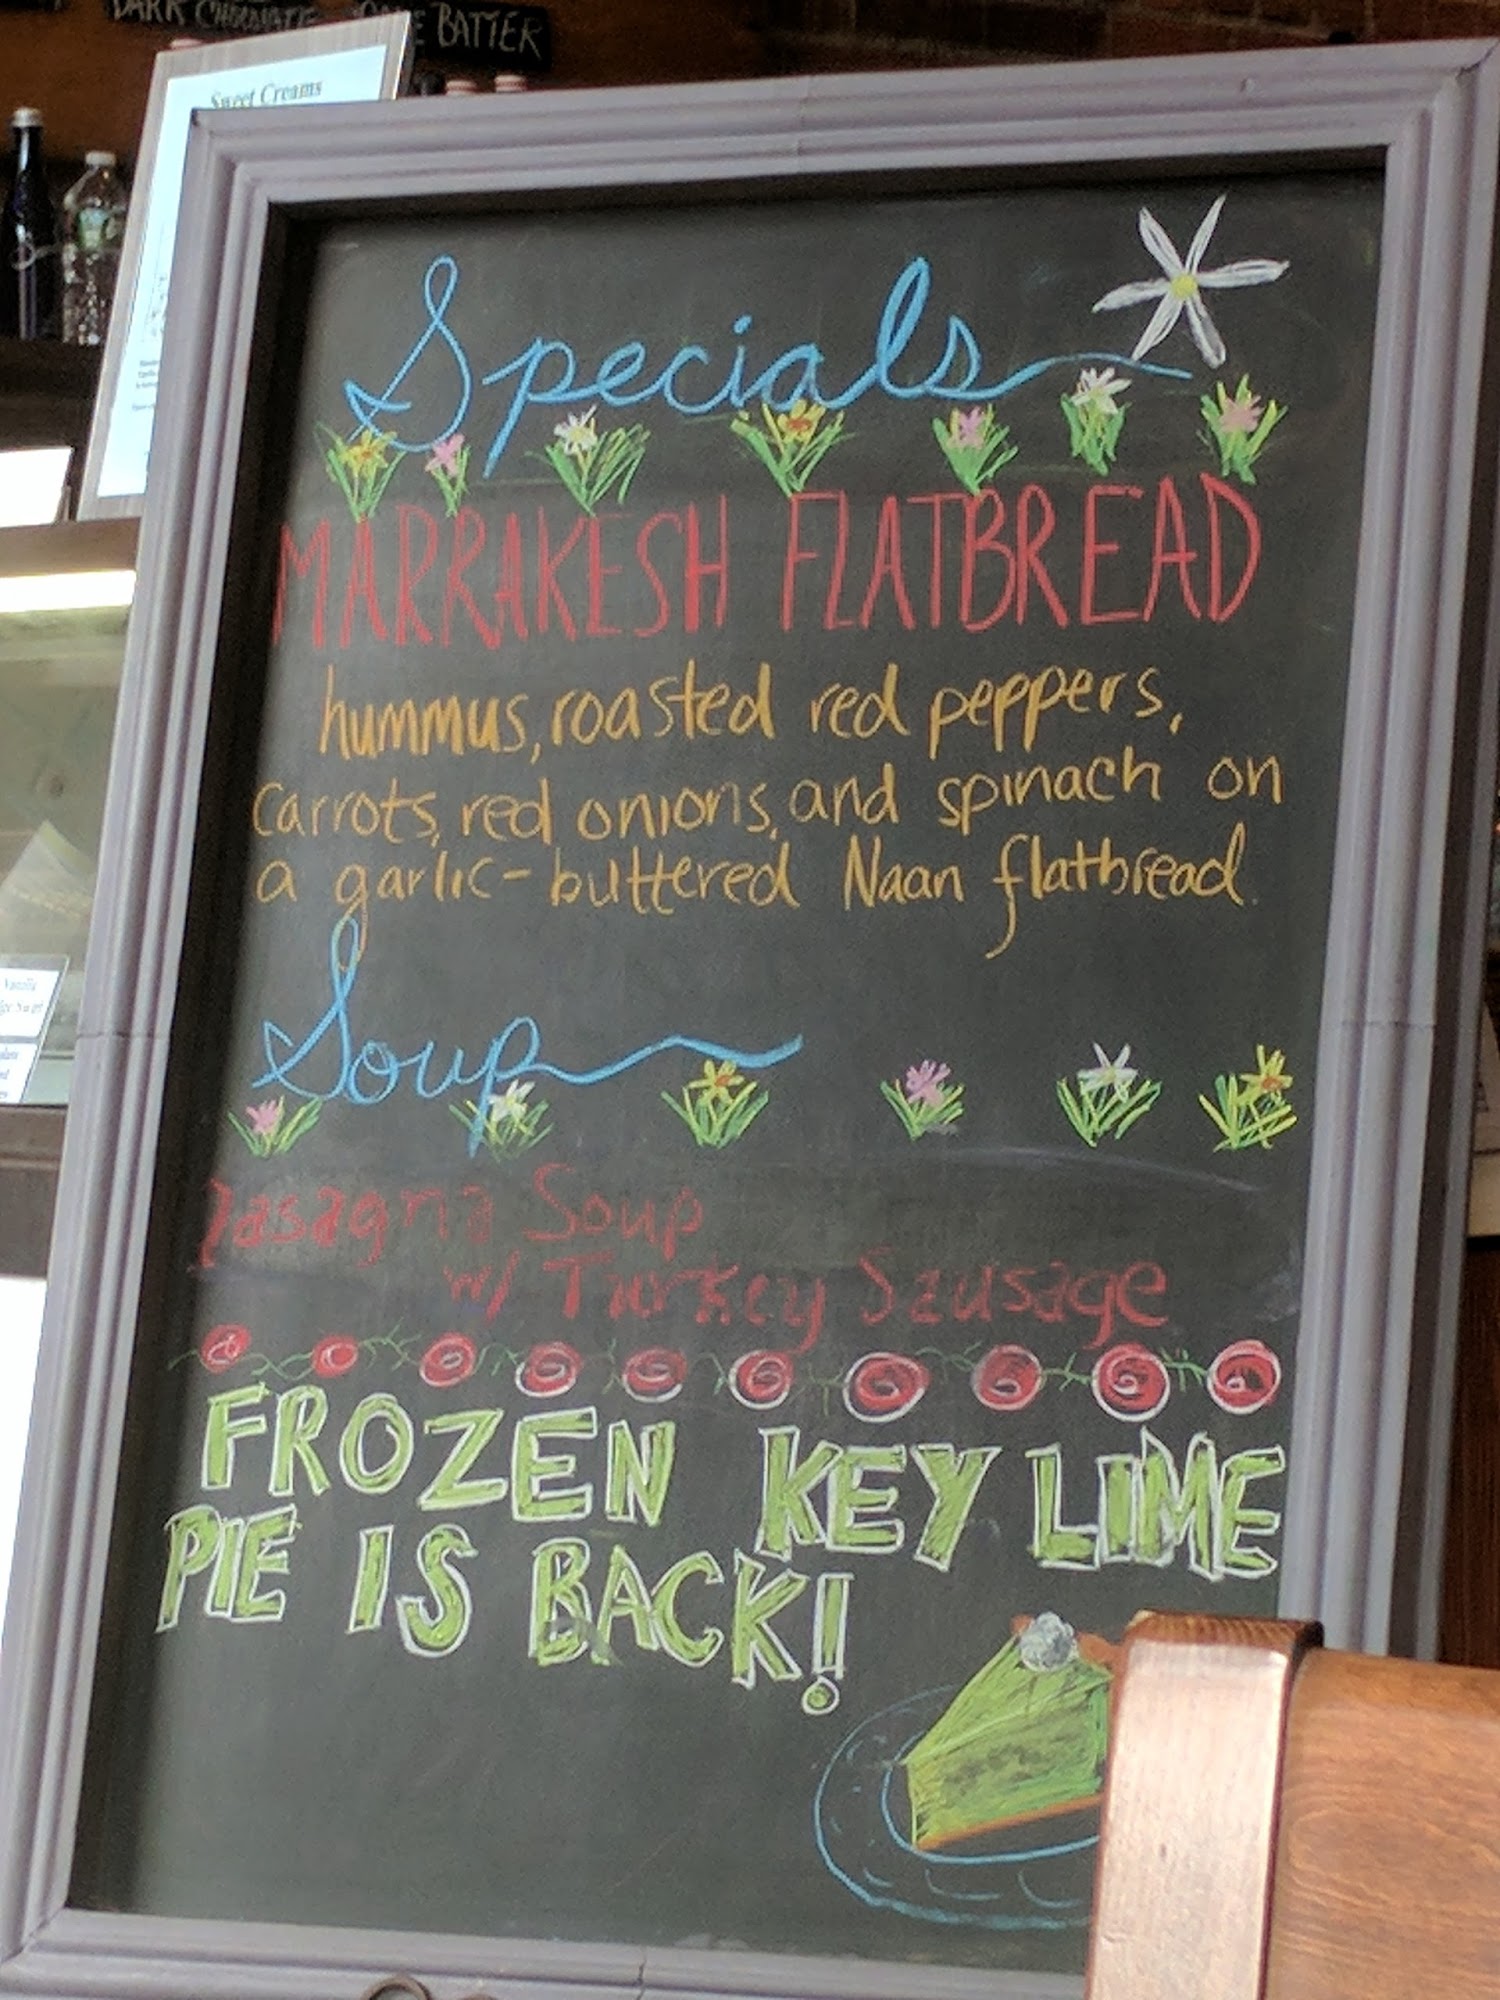 DARK CHOCOLATE
BATTER
Sweet Creams
Specials
MARRAKESH FLATBREAD
hummus, roasted red peppers,
carrots, red onions, and spinach on
a garlic-buttered Naan flatbread.
Soup
Lasagna Soup
w/ Turkey Sausage
FROZEN KEY LIME
PIE IS BACK!
Vanilla